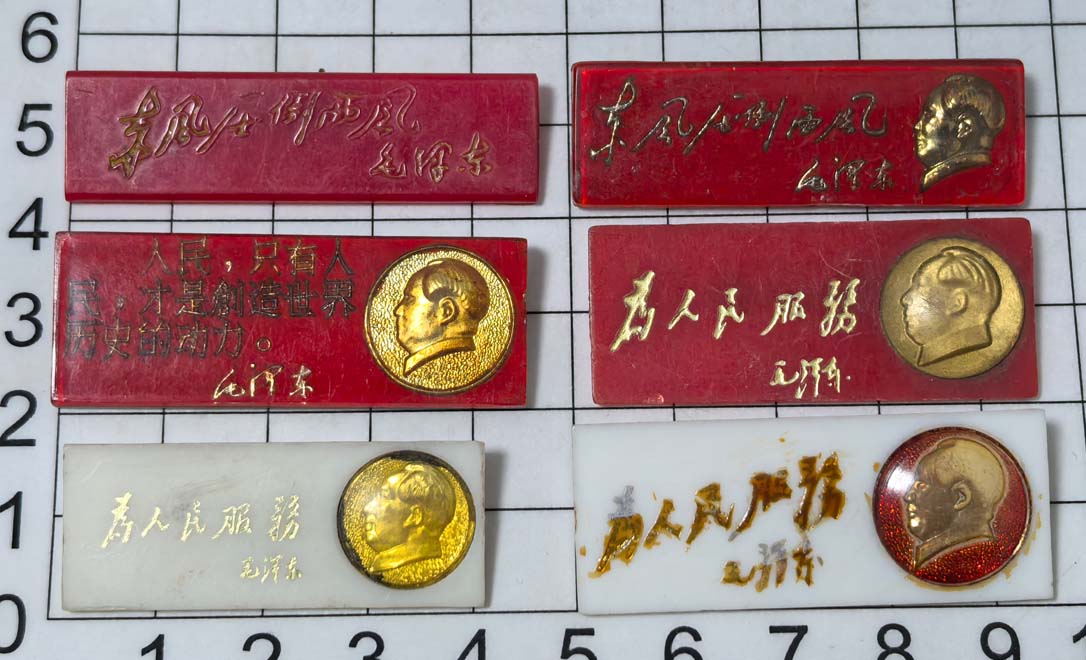 6
东风压倒西风
毛泽东
东风压倒西风
毛泽东
5
4
人民，只有人
民，才是創造世界
历史的动力。
毛泽东
為人民服務
毛泽东
3
2
為人民服務
毛泽东
為人民服務
毛泽东
1
0
1 2 3 4 5 6 7 8 9